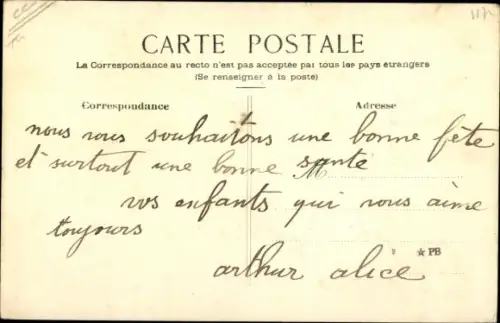 1172
CARTE POSTALE
La Correspondance au recto n'est pas acceptée par tous les pays étrangers
(Se renseigner à la poste)
Correspondance
Adresse
nous vous souhaitons une bonne fête
et surtout une bonne santé
M
vos enfants qui vous aime
toujours
★PB
arthur alice